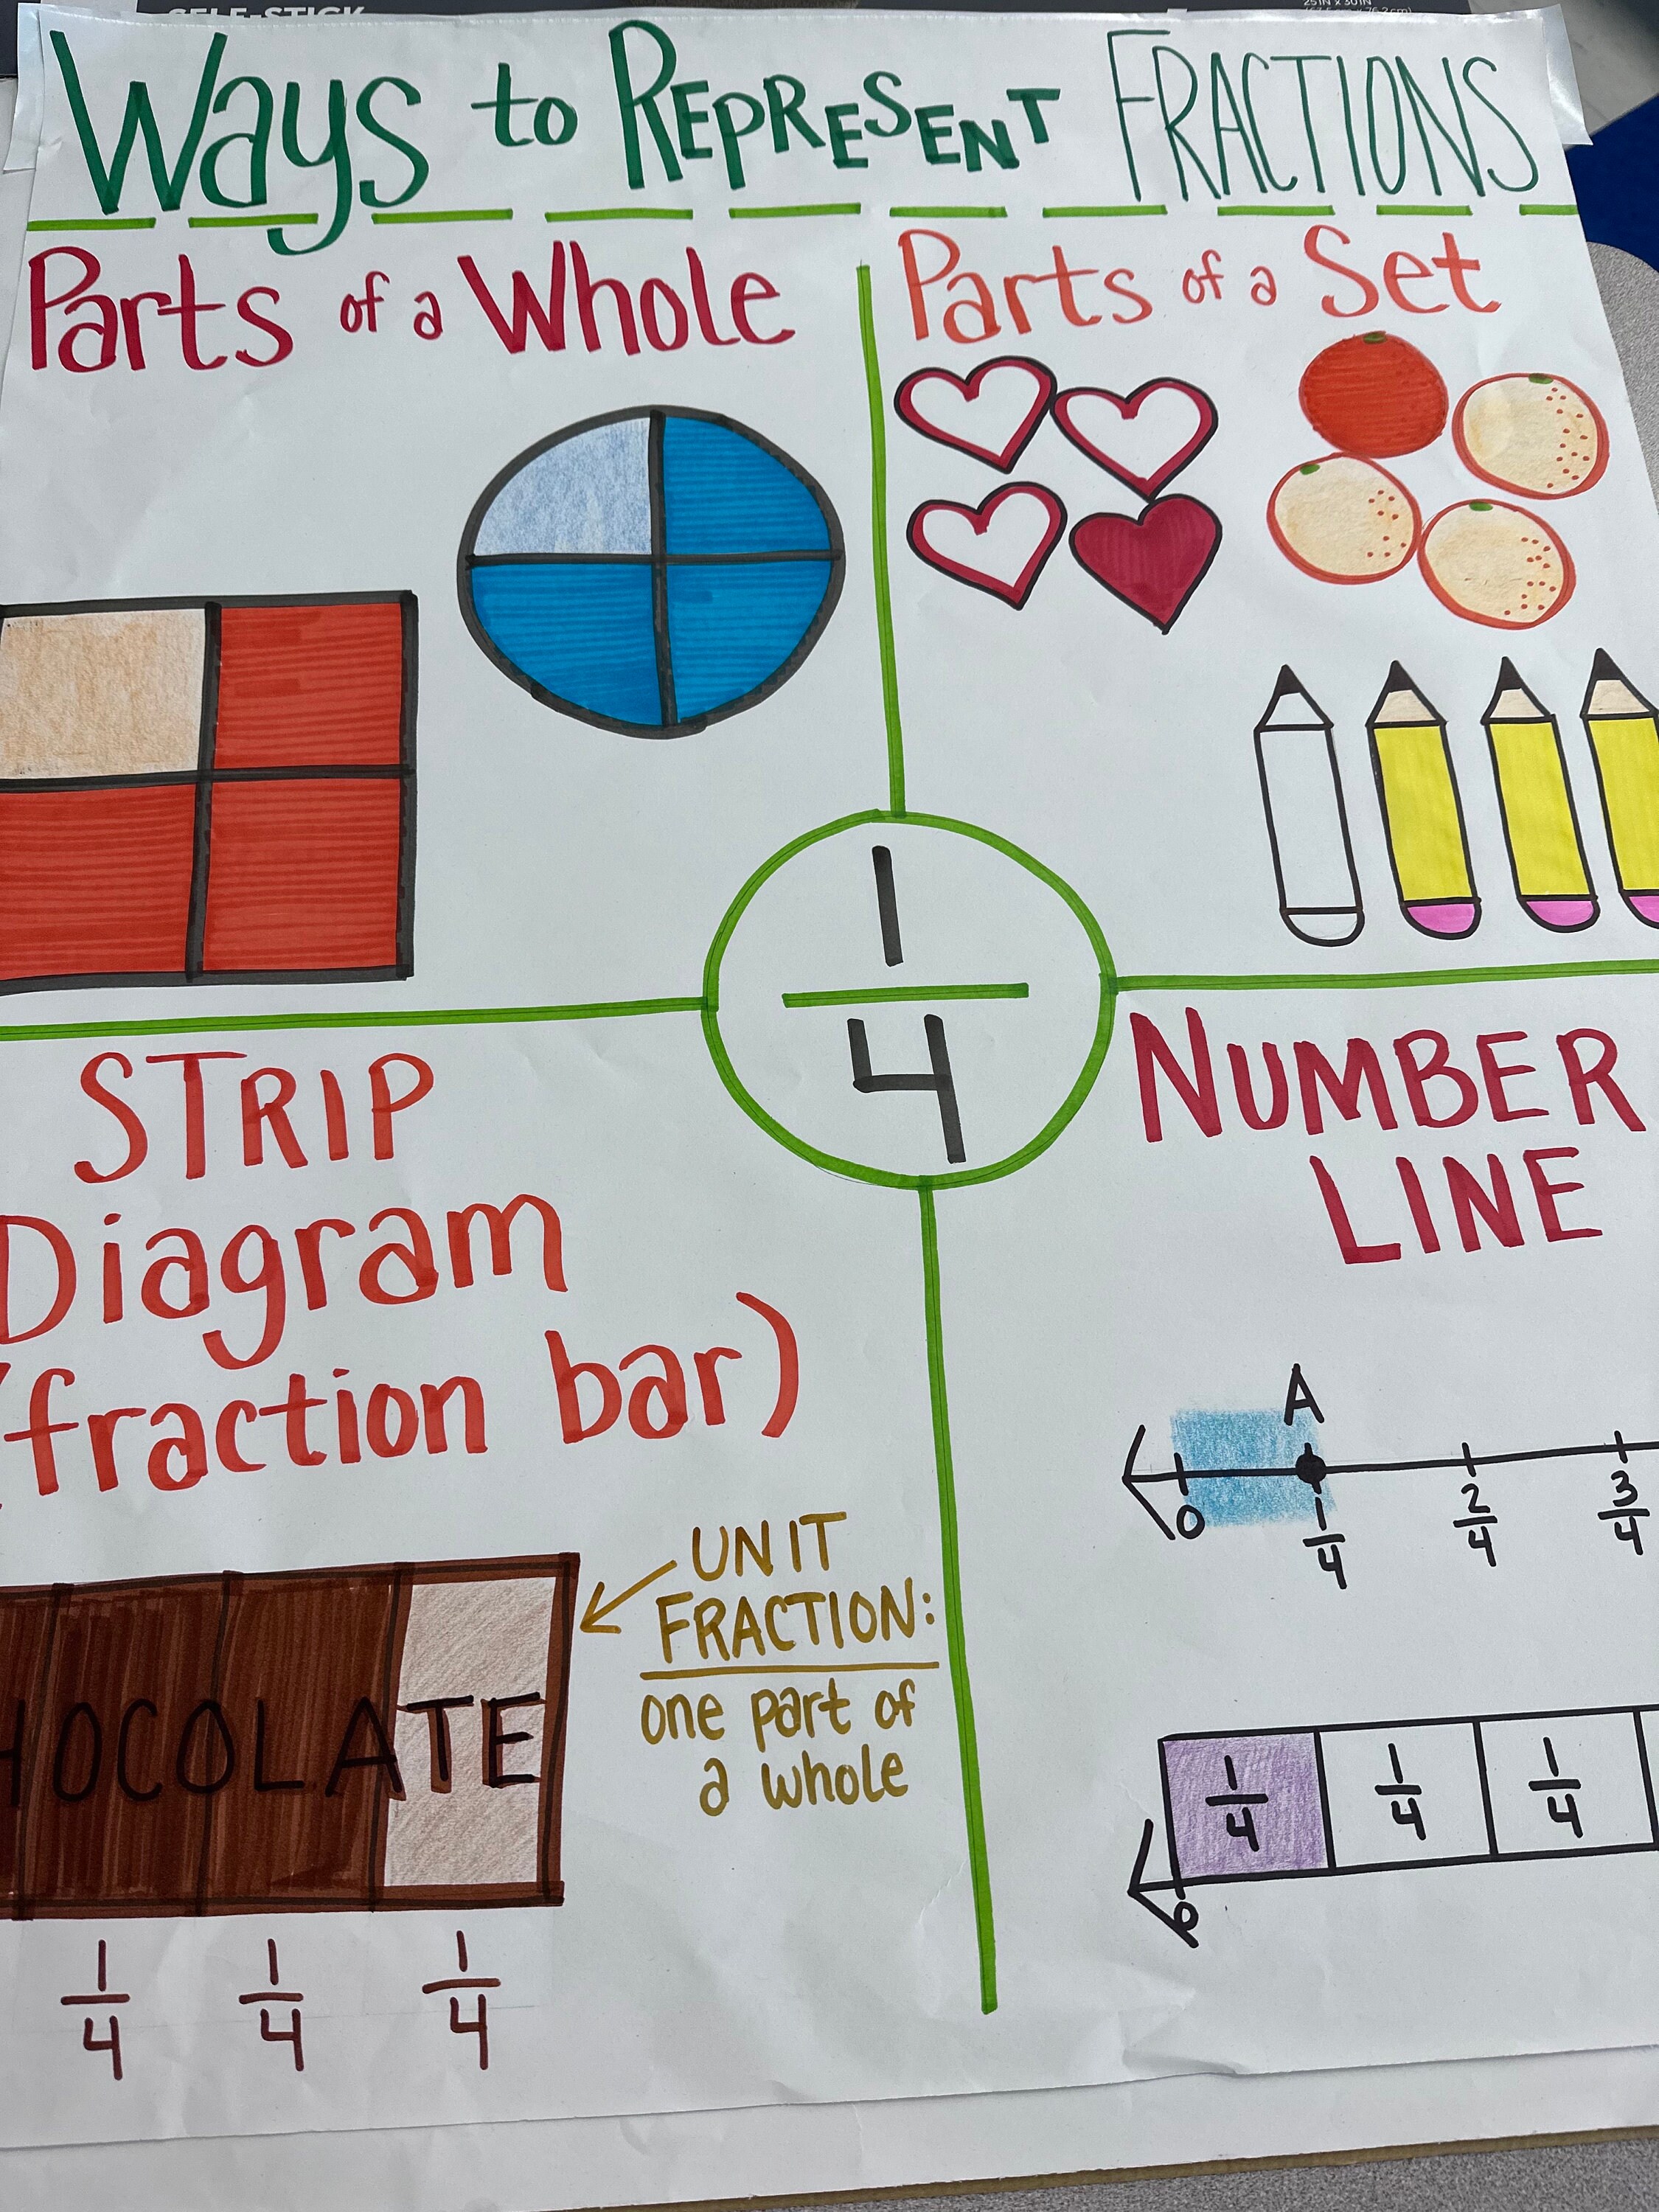 SELF-STICK
25IN x 30IN
Ways to REPRESENT FRACTIONS
Parts of a Whole
Parts of a Set
1
4
STRIP
Diagram
(fraction bar)
UNIT
FRACTION:
one part of
a whole
HOCOLATE
1/4 1/4 1/4
NUMBER
LINE
A
0 1/4 2/4 3/4
1/4 1/4 1/4
0